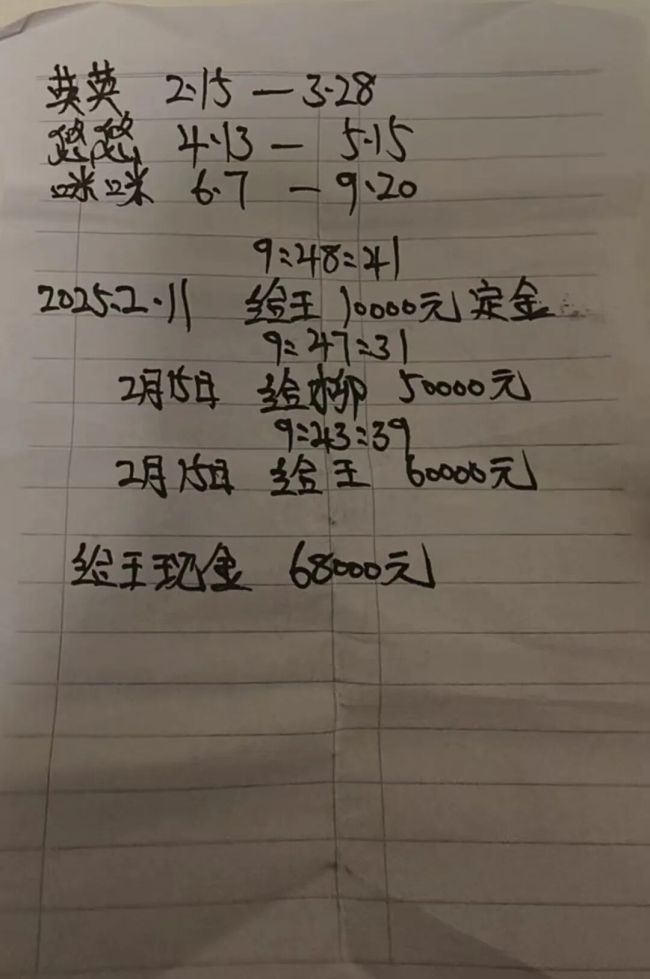 英英 2.15 — 3.28
悠悠 4.13 — 5.15
咪咪 6.7 — 9.20
9:48:41
2025.2.11 给王 10000元定金
9:47:31
2月15日 给柳 50000元
9:43:39
2月15日 给王 60000元
给王现金 68000元